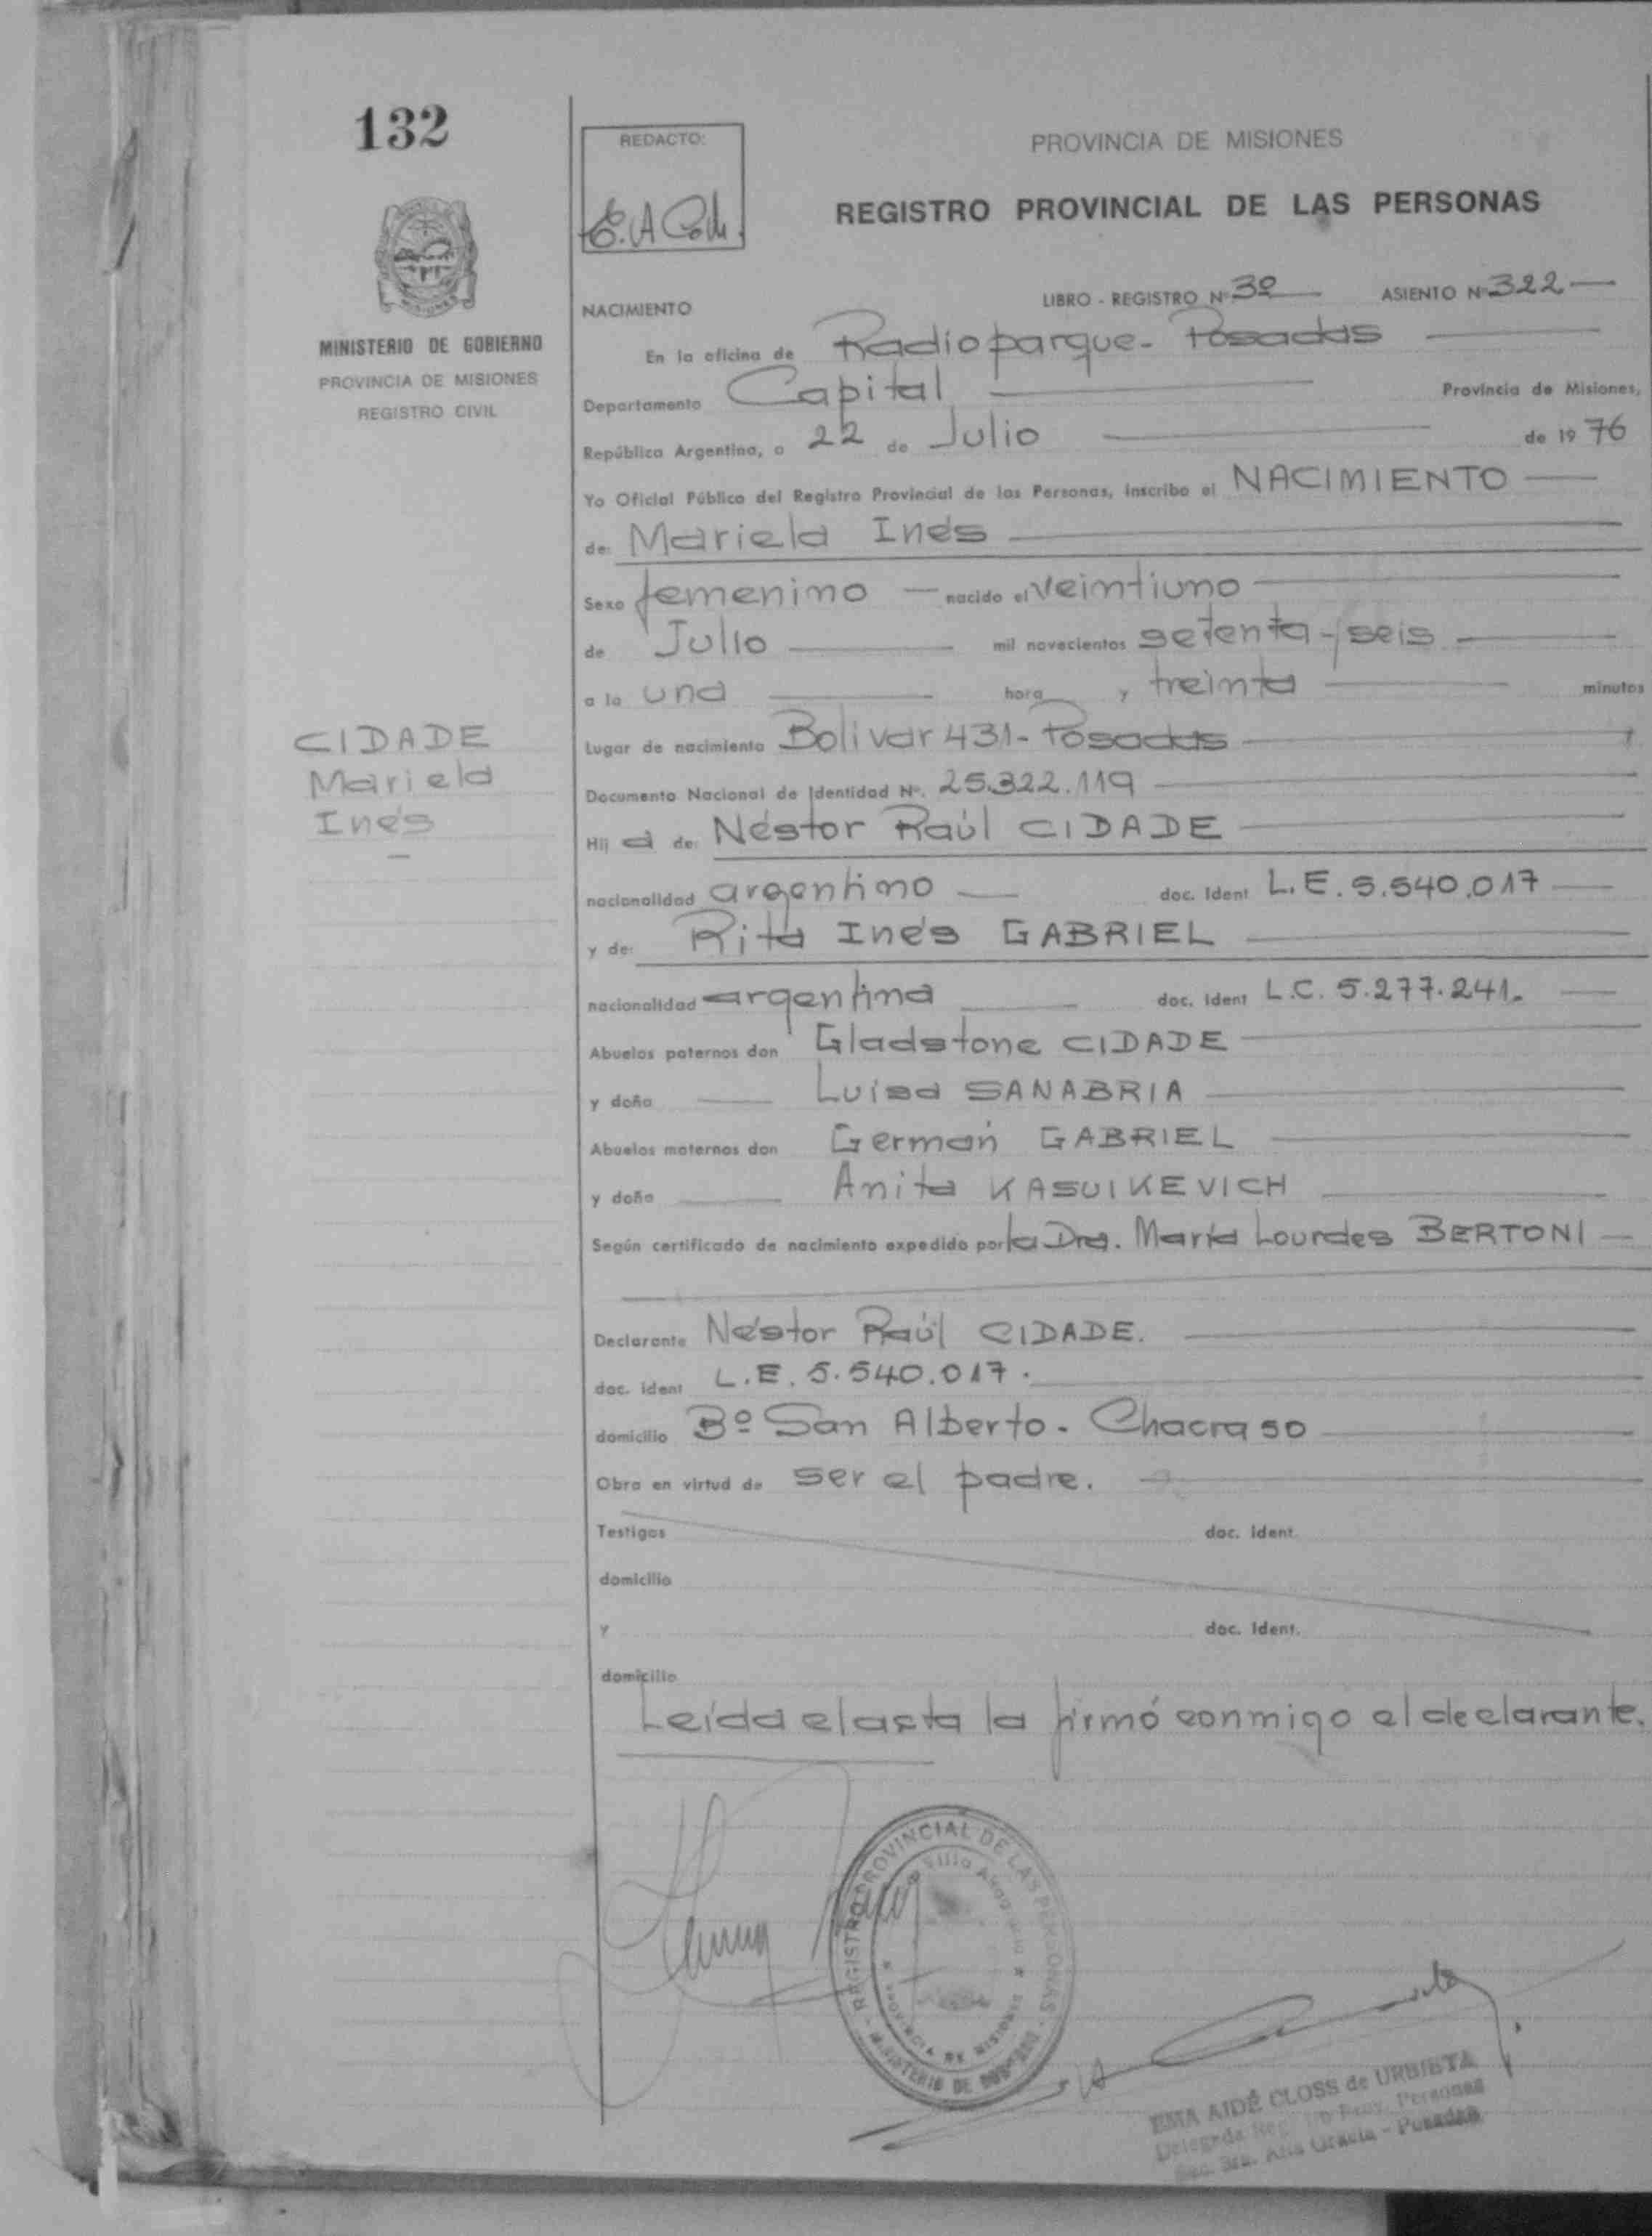 132
MINISTERIO DE GOBIERNO
PROVINCIA DE MISIONES
REGISTRO CIVIL
CIDADE
Mariela
Inés
REDACTO:
PROVINCIA DE MISIONES
REGISTRO PROVINCIAL DE LAS PERSONAS
NACIMIENTO LIBRO - REGISTRO Nº 3º ASIENTO Nº 322
En la oficina de Radioparque - Posadas
Departamento Capital Provincia de Misiones,
República Argentina, a 22 de Julio de 1976
Yo Oficial Público del Registro Provincial de las Personas, inscribo el NACIMIENTO
de: Mariela Inés
Sexo femenino nacido el veintiuno
de Julio mil novecientos setenta y seis
a la una hora y treinta minutos
Lugar de nacimiento Bolivar 431 - Posadas
Documento Nacional de Identidad Nº. 25.322.119
Hij a de: Néstor Raúl CIDADE
nacionalidad argentino doc. Ident L.E. 5.540.017
y de: Rita Inés GABRIEL
nacionalidad argentina doc. Ident L.C. 5.277.241.
Abuelos paternos don Gladstone CIDADE
y doña Luisa SANABRIA
Abuelos maternos don Germán GABRIEL
y doña Anita KASUIKEVICH
Según certificado de nacimiento expedido por la Dra. María Lourdes BERTONI
Declarante Néstor Raúl CIDADE.
doc. ident L.E. 5.540.017.
domicilio Bº San Alberto - Chacra 50
Obra en virtud de ser el padre.
Testigos doc. Ident.
domicilio
y doc. Ident.
domicilio
Leída el acta la firmó conmigo el declarante.
REGISTRO PROVINCIAL DE LAS PERSONAS
PROVINCIA DE MISIONES
MINISTERIO DE GOBIERNO
EMA AIDÉ CLOSS de URBIETA
Delegada Reg. Prov. Personas
Gracia - Posadas